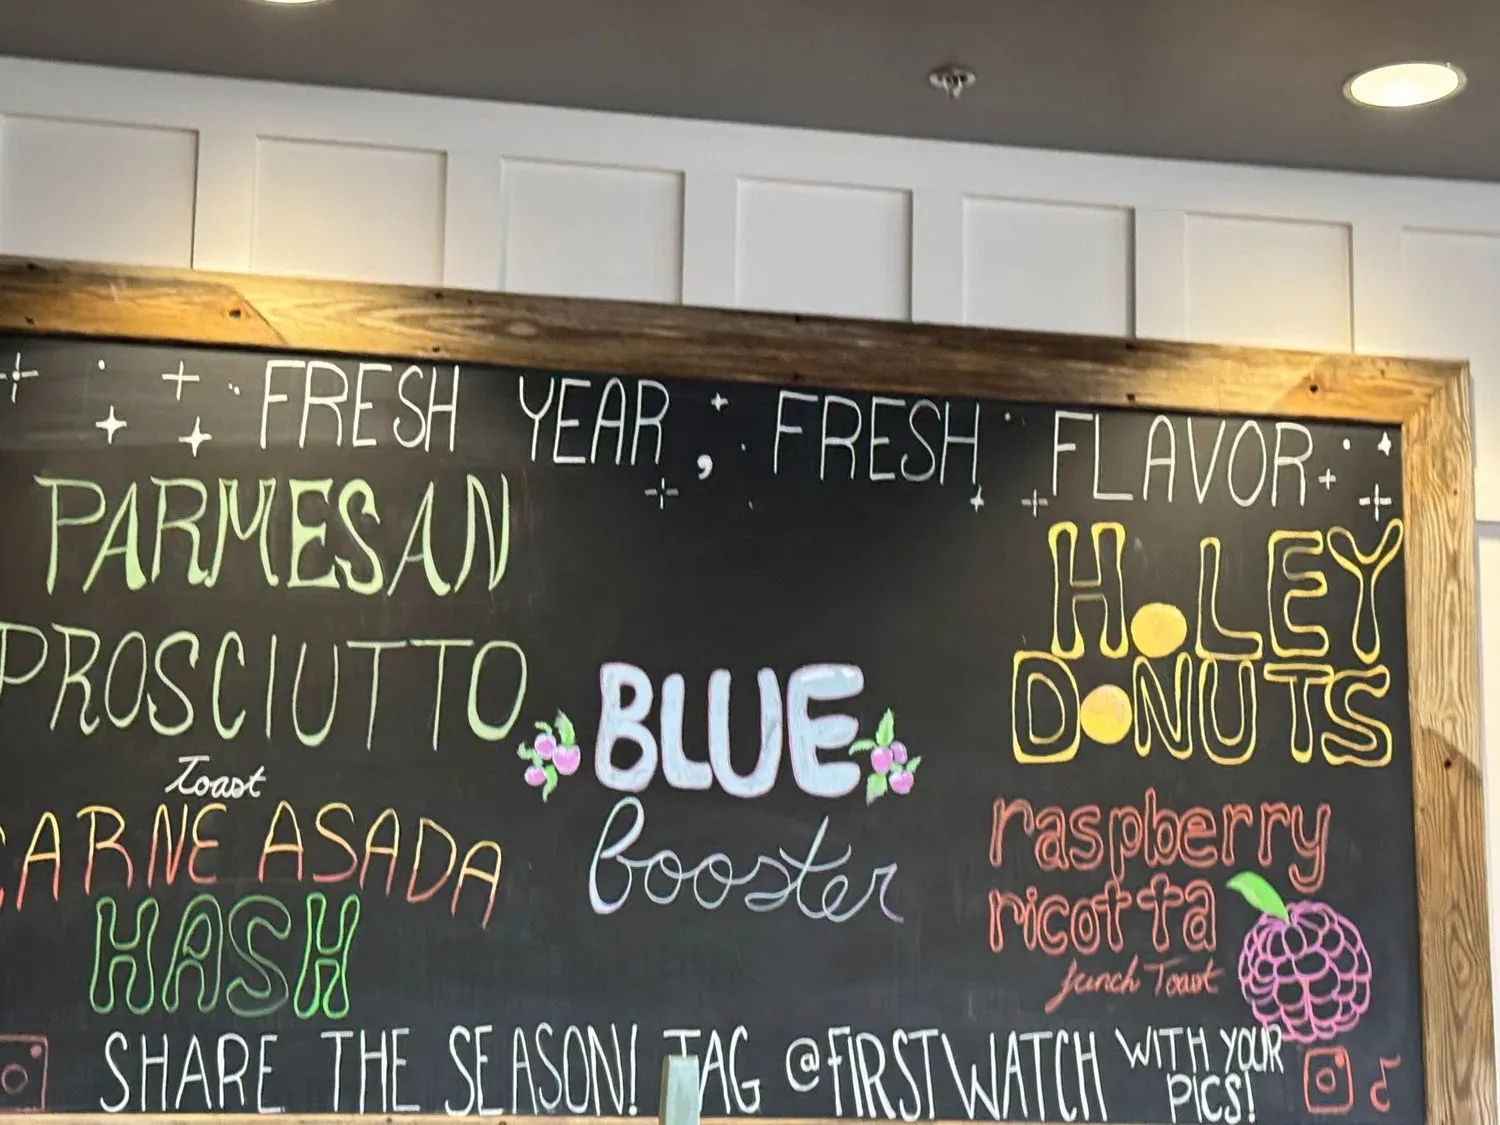 FRESH YEAR, FRESH FLAVOR
PARMESAN
PROSCIUTTO
Toast
CARNE ASADA
HASH
BLUE
booster
HOLEY
DONUTS
raspberry
ricotta
french Toast
SHARE THE SEASON! TAG @FIRSTWATCH WITH YOUR
PICS!